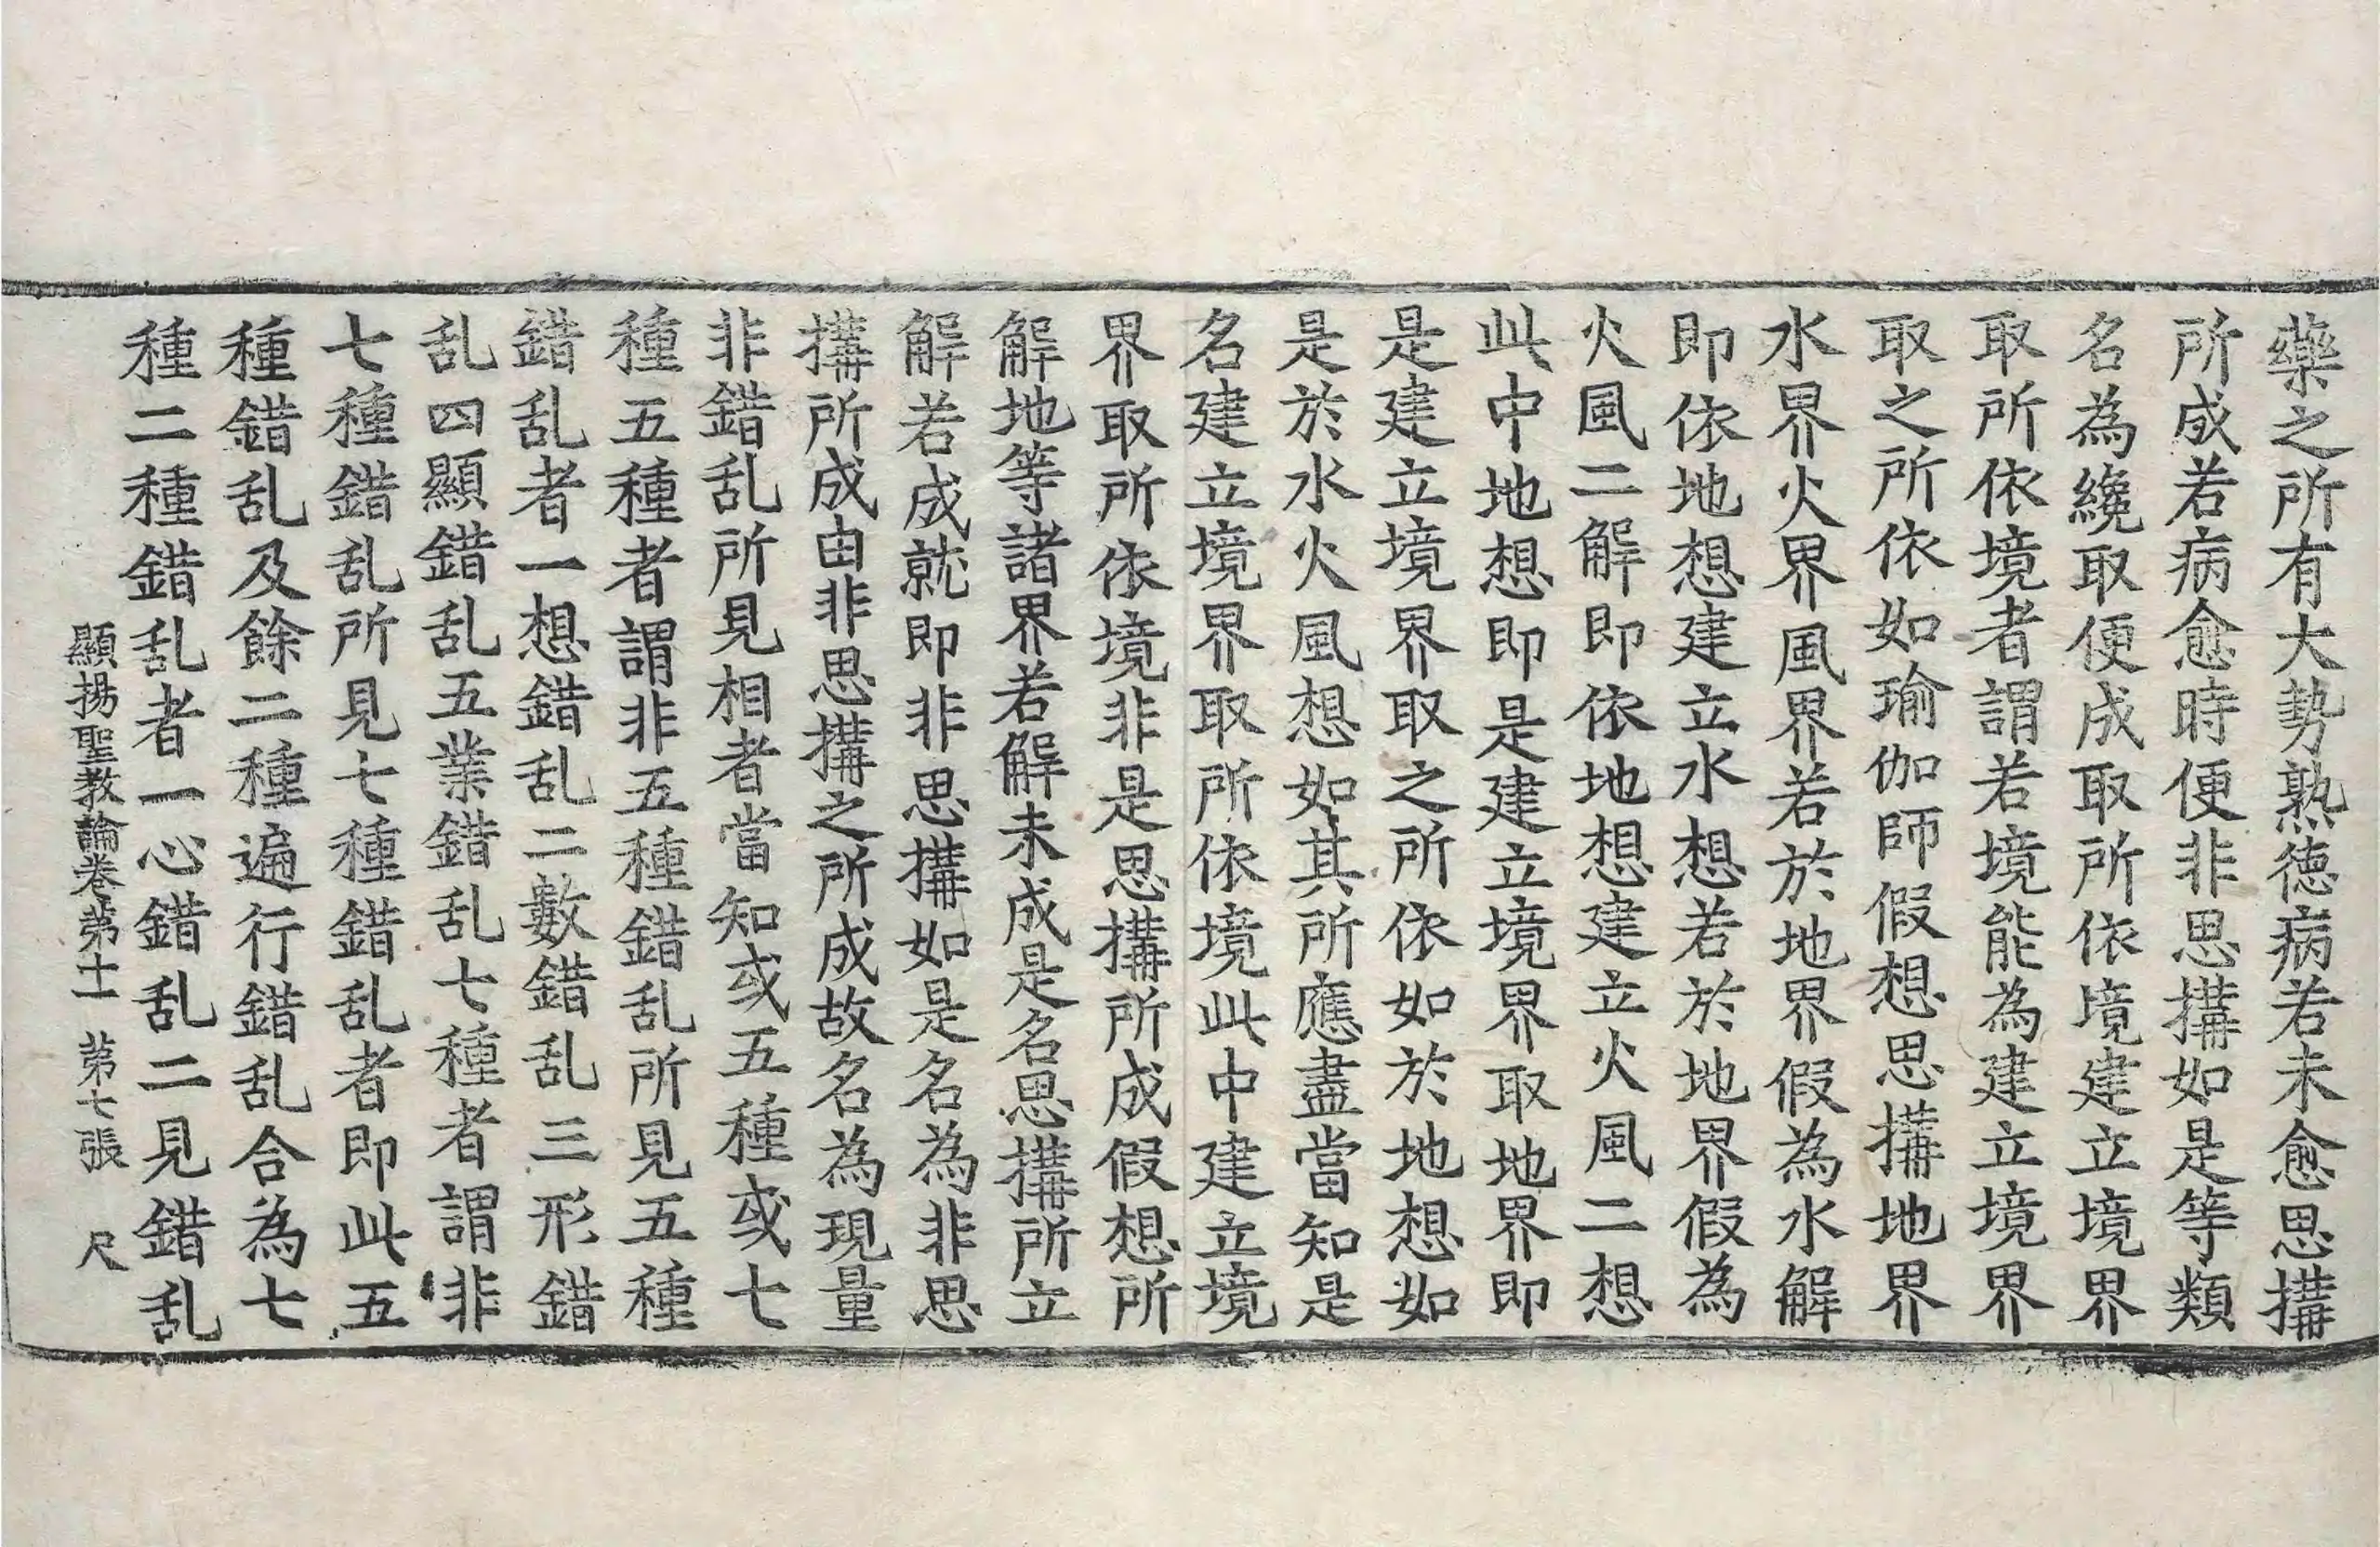 藥之所有大勢熟德病若未愈思搆
所成若病愈時便非思搆如是等類
名為纔取便成取所依境建立境界
取所依境者謂若境能為建立境界
取之所依如瑜伽師假想思搆地界
水界火界風界若於地界假為水解
即依地想建立水想若於地界假為
火風二解即依地想建立火風二想
此中地想即是建立境界取地界即
是建立境界取之所依如於地想如
是於水火風想如其所應盡當知是
名建立境界取所依境此中建立境
界取所依境非是思搆所成假想所
解地等諸界若解未成是名思搆所立
解若成就即非思搆如是名為非思
搆所成由非思搆之所成故名為現量
非錯乱所見相者當知或五種或七
種五種者謂非五種錯乱所見五種
錯乱者一想錯乱二數錯乱三形錯
乱四顯錯乱五業錯乱七種者謂非
七種錯乱所見七種錯乱者即此五
種錯乱及餘二種遍行錯乱合為七
種二種錯乱者一心錯乱二見錯乱
顯揚聖教論卷第十一 第七張 尺